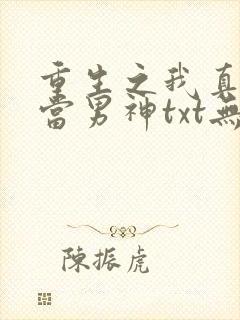 重生之我真
當男神txt無
陳振虎